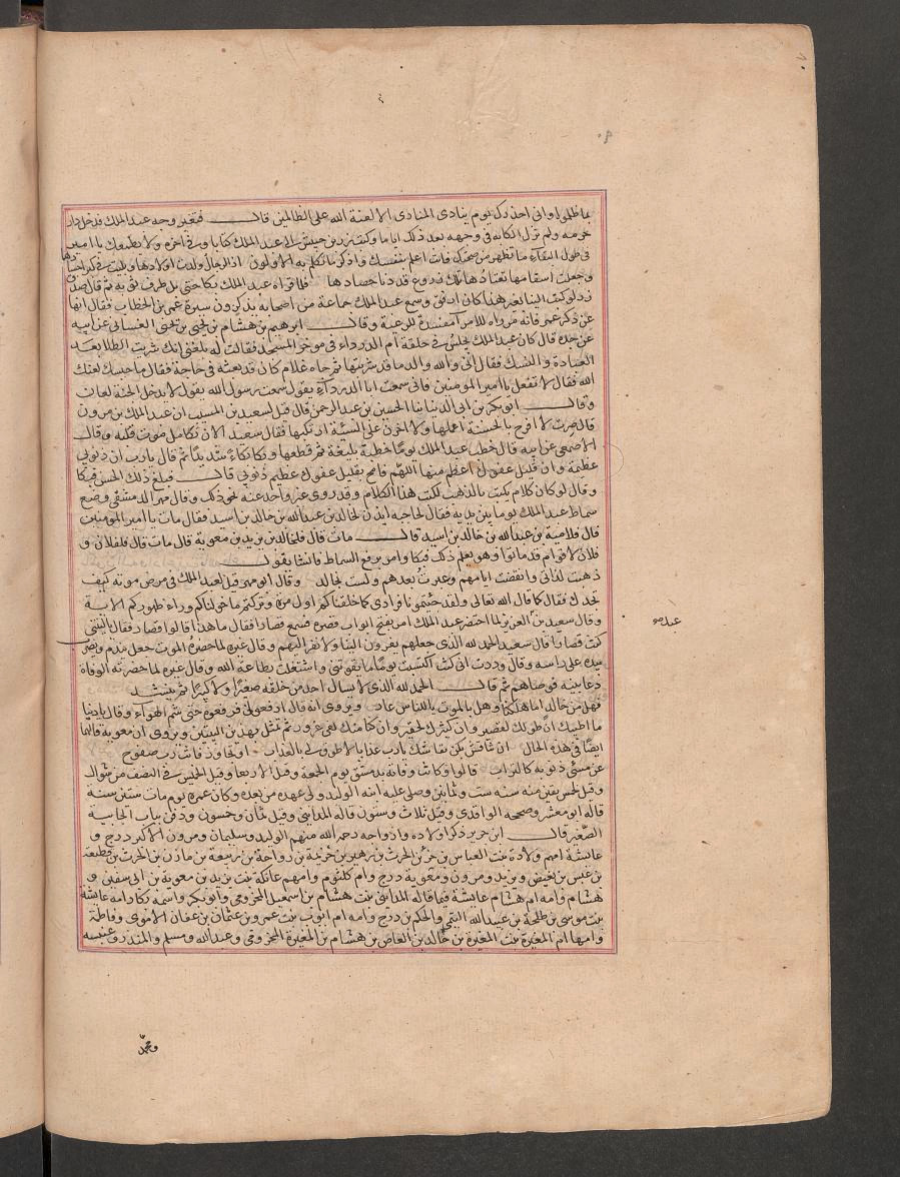 ما ظلموا وانى احذرك يوم ينادى المنادى الا لعنة الله على الظالمين قال فتغير وجه عبد الملك فدخل دار
حرمه ولم تزل الكآبة في وجهه بعد ذلك اياما وكتب زر بن حبيش الى عبد الملك كتابا وفي اخره ولا يطمعك يا امير
في طول البقاء ما يظهر من صحتك فانت اعلم بنفسك واذكر ما تكلم به الاولون اذا الرجال ولدت اولادها وبليت من كبر اجسادها
وجعلت اسقامها تعتادها تلك زروع قد دنا حصادها فلما قراه عبد الملك بكا حتى بل طرف ثوبه ثم قال صدق
زر لو كتب الينا بغير هذا كان ارفق وسمع عبد الملك جماعة من اصحابه يذكرون سيرة عمر بن الخطاب فقال انها
عن ذكر عمر فانه مرراه للامرا مفسدة للرعية وقال ابرهيم بن هشام بن يحيى بن يحيى الغساني عن ابيه
عن جده قال كان عبد الملك يجلس في حلقة ام الدرداء في موخر المسجد فقالت له بلغني انك شربت الطلا بعد
العبادة والنسك فقال اى والله والدما قد شربتها ثم جاه غلام كان قد بعثه في حاجة فقال ما حبسك لعنك
الله فقال لا تفعل يا امير المومنين فاني سمعت ابا الدرداء يقول سمعت رسول الله يقول لا يدخل الجنة لعان
وقال ابو بكر بن ابى الدنيا ثنا الحسين بن عبد الرحمن قال قيل لسعيد بن المسيب ان عبد الملك بن مرون
قال صرت لا افرح بالحسنة اعملها ولا احزن على السيئة ارتكبها فقال سعيد الان تكامل موت قلبه وقال
الاصمعي عن ابيه قال خطب عبد الملك يوما خطبة بليغة ثم قطعها وبكا بكاء شديدا ثم قال يارب ان ذنوبي
عظيمة وان قليل عفوك اعظم منها اللهم فامح بقليل عفوك عظيم ذنوبي قال فبلغ ذلك الحسن فبكا
وقال لو كان كلام يكتب بالذهب لكتب هذا الكلام وقد روى غير واحد عنه نحو ذلك وقال مسهر الدمشقي وضع
سماط عبد الملك يوما بين يديه فقال لحاجبه ايذن لخالد بن عبد الله بن خالد بن اسيد فقال مات يا امير المومنين
قال فلامية بن عبد الله بن خالد بن اسيد قال مات قال فلخالد بن يزيد بن معوية قال مات قال فلفلان و
فلان لاقوام قد ماتوا وهو يعلم ذلك فبكا وامر برفع السماط فانشا يقول
ذهبت لداتي وانقضت ايامهم وغبرت بعدهم ولست بخالد وقال ابو مسهر قيل لعبد الملك في مرض موته كيف
تجدك فقال كما قال الله تعالى ولقد جئتمونا فرادى كما خلقناكم اول مرة وتركتم ما خولناكم وراء ظهوركم الاية
وقال سعيد بن العزيز لما احتضر عبد الملك امر بفتح ابواب قصره فسمع قصارا فقال ما هذا قالوا قصار فقال ياليتنى
عبد صح
كنت قصارا قال سعيد الحمد لله الذى جعلهم يفرون الينا ولا نفر اليهم وقال غيره لما حضره الموت جعل يندم ويضرب
بيده على راسه وقال وددت انى كنت اكتسب يوما ما يقوتنى واشتغلت بطاعة الله وقال غيره لما حضرته الوفاة
دعا بنيه فوصاهم ثم قال الحمد لله الذى لا يسال احد من خلقه صغيرا ولا كبيرا ثم ينشد
فهل من خالد اما هلكنا وهل بالموت ياللناس عار ويروى انه قال ارفعونى فرفعوه حتى شم الهواء وقال يا دنيا
ما اطيبك ان طويلك لقصير وان كثيرك لحقير وان كنا منك لفى غرور ثم تمثل بهذين البيتين ويروى ان معوية قالهما
ايضا في هذه الحال ان تناقش يكن نقاشك يا رب عذابا لا طوق لي بالعذاب او تجاوز فانت رب صفوح
عن مسئ ذنوبه كالتراب قالوا وكانت وفاته بدمشق يوم الجمعة وقيل الاربعا وقيل الخميس في النصف من شوال
وقيل لخمس بقين منه سنة ست وثمانين وصلى عليه ابنه الوليد ولى عهده من بعده وكان عمره يوم مات ستين سنة
قاله ابو معشر وصححه الواقدى وقيل ثلاث وستون قاله المدايني وقيل ثمان وخمسون ودفن بباب الجابية
الصغير قال ابن جرير ذكر اولاده وازواجه رحمه الله منهم الوليد وسليمان ومرون الاكبر درج و
عايشة امهم ولادة بنت العباس بن جز بن الحرث بن زهير بن خزيمة بن رواحة بن ربيعة بن مازن بن الحرث بن قطيعة
بن عبس بن بغيض ويزيد ومرون ومعوية درج وام كلثوم وامهم عاتكة بنت يزيد بن معوية بن ابى سفين و
هشام وامه ام هشام عايشة فيما قاله المدايني بنت هشام بن اسمعيل المخزومى وابو بكر واسمه بكار امه عايشة
بنت موسى بن طلحة بن عبيد الله التيمى والحكم بن درج وامه ام ايوب بنت عمرو بن عثمان بن عفان الاموى وفاطمة
وامها ام المغيرة بنت المغيرة بن خالد بن العاص بن هشام بن المغيرة المخزومى وعبد الله ومسلم والمنذر وعنبسه
ومحمد